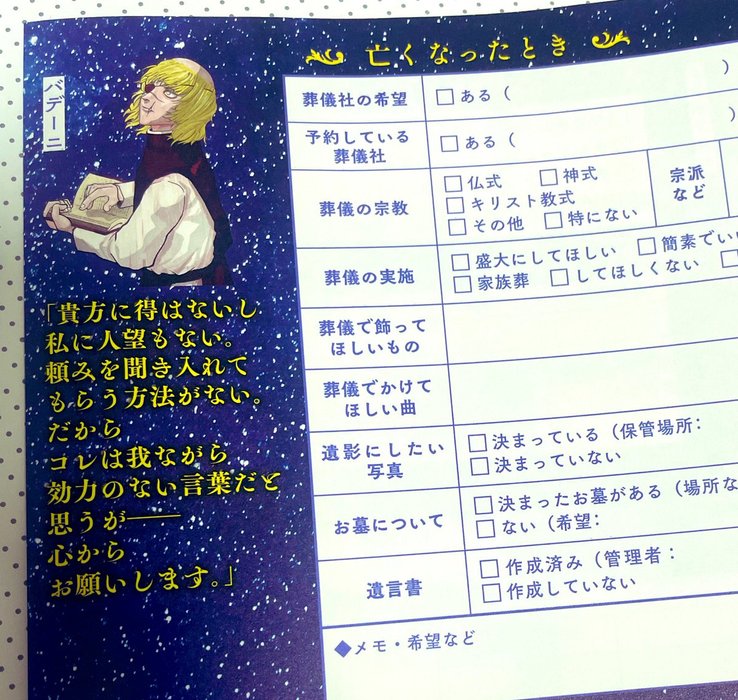 亡くなったとき
バデーニ
「貴方に得はないし
私に人望もない。
頼みを聞き入れて
もらう方法がない。
だから
コレは我ながら
効力のない言葉だと
思うが──
心から
お願いします。」
葬儀社の希望
□ある（　　　）
予約している
葬儀社
□ある（　　　）
葬儀の宗教
□仏式　□神式
□キリスト教式
□その他　□特にない
宗派
など
葬儀の実施
□盛大にしてほしい　□簡素でい
□家族葬　□してほしくない　□
葬儀で飾って
ほしいもの
葬儀でかけて
ほしい曲
遺影にしたい
写真
□決まっている（保管場所：
□決まっていない
お墓について
□決まったお墓がある（場所な
□ない（希望：
遺言書
□作成済み（管理者：
□作成していない
◆メモ・希望など